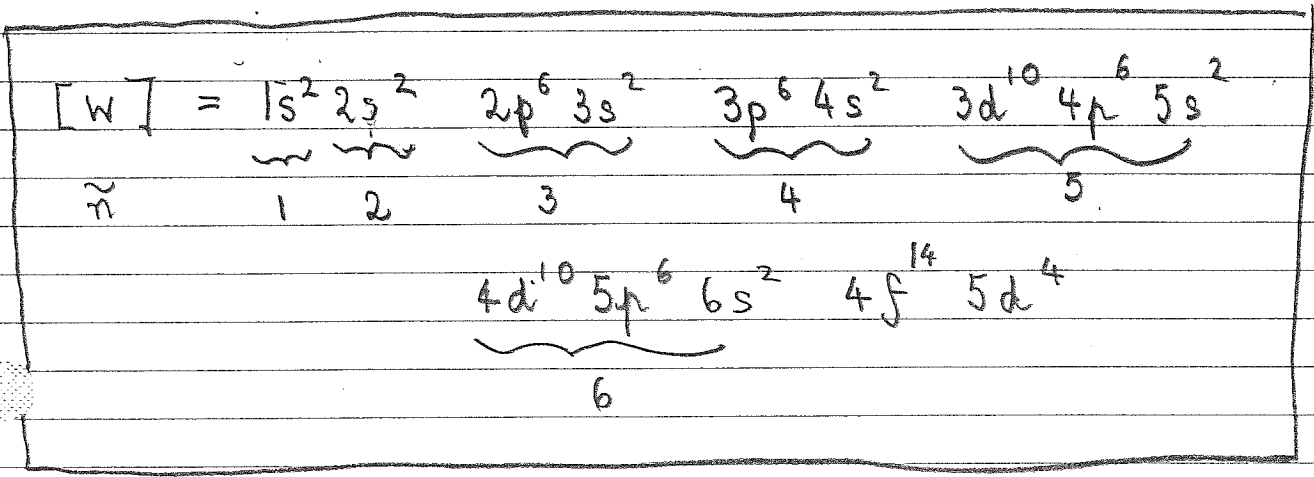 [W] = 1s² 2s² 2p⁶ 3s² 3p⁶ 4s² 3d¹⁰ 4p⁶ 5s²
ñ 1 2 3 4 5
4d¹⁰ 5p⁶ 6s² 4f¹⁴ 5d⁴
6